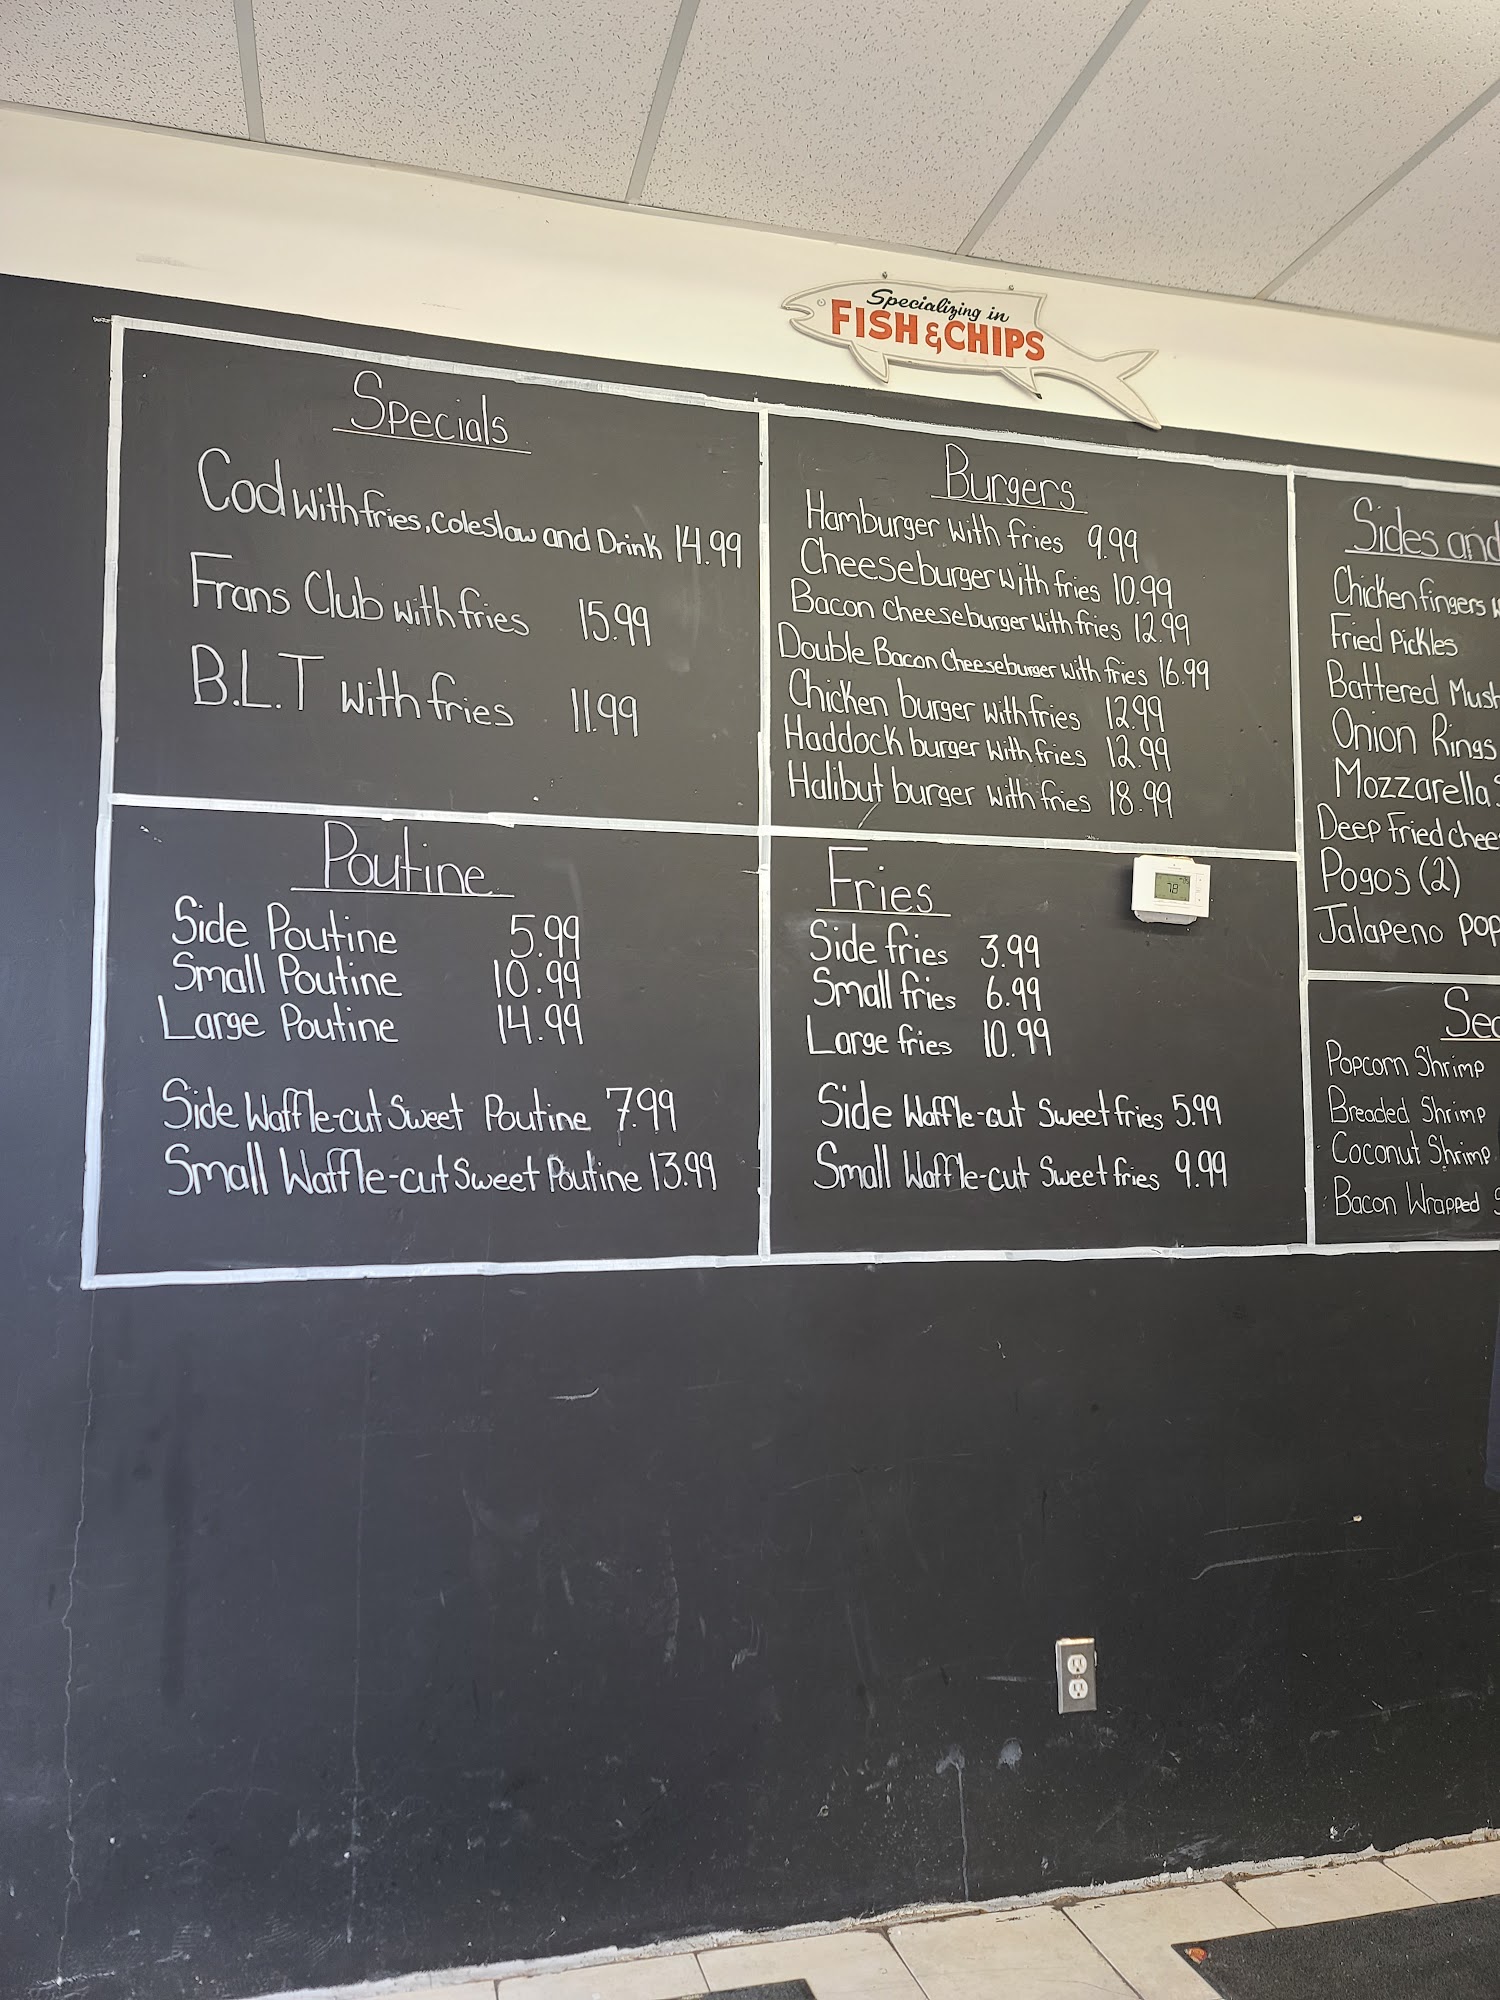 Specializing in
FISH & CHIPS
Specials
Cod with fries, coleslaw and Drink 14.99
Frans Club with fries 15.99
B.L.T with fries 11.99
Burgers
Hamburger with fries 9.99
Cheeseburger with fries 10.99
Bacon Cheeseburger with fries 12.99
Double Bacon Cheeseburger with fries 16.99
Chicken burger with fries 12.99
Haddock burger with fries 12.99
Halibut burger with fries 18.99
Sides and
Chicken fingers
Fried Pickles
Battered Mush
Onion Rings
Mozzarella
Deep Fried chee
Pogos (2)
Jalapeno pop
Poutine
Side Poutine 5.99
Small Poutine 10.99
Large Poutine 14.99
Side Waffle-cut Sweet Poutine 7.99
Small Waffle-cut Sweet Poutine 13.99
Fries
Side fries 3.99
Small fries 6.99
Large fries 10.99
Side Waffle-cut Sweet fries 5.99
Small Waffle-cut Sweet fries 9.99
78
Sea
Popcorn Shrimp
Breaded Shrimp
Coconut Shrimp
Bacon Wrapped